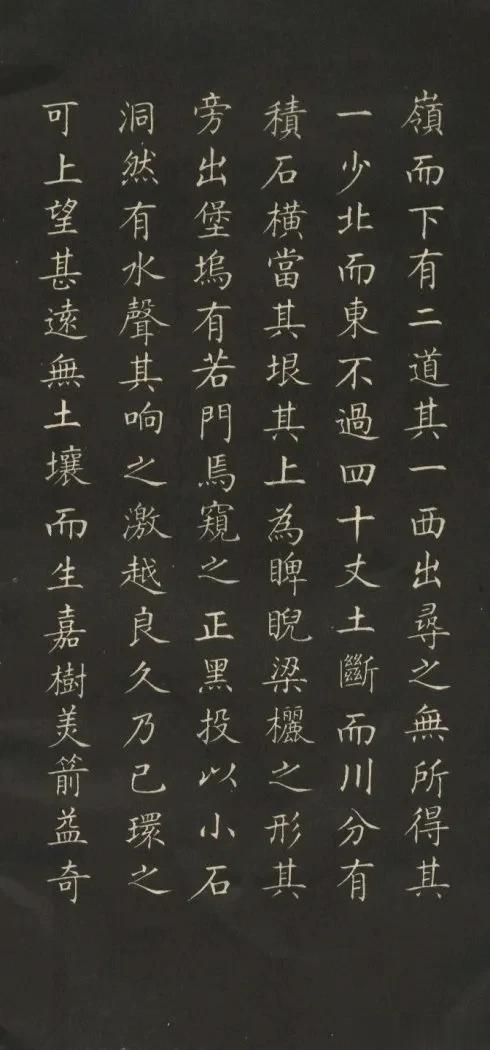 嶺而下有二道其一西出尋之無所得其
一少北而東不過四十丈土斷而川分有
積石橫當其垠其上為睥睨梁欐之形其
旁出堡塢有若門焉窺之正黑投以小石
洞然有水聲其响之激越良久乃已環之
可上望甚遠無土壤而生嘉樹美箭益奇